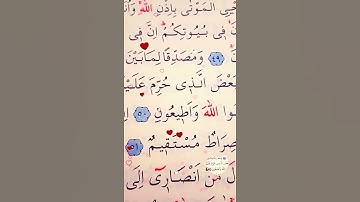 ـحْيِي الْمَوْتٰى بِاِذْنِ اللّٰهِ وَاُنَـ
نَ ف۪ي بُيُوتِكُمْ اِنَّ ف۪ي
﴿٤٩﴾ وَمُصَدِّقًا لِمَا بَيْنَ
بَعْضَ الَّذ۪ي حُرِّمَ عَلَيْـ
ـوا اللّٰهَ وَاَط۪يعُونِ ﴿٥٠﴾
صِرَاطٌ مُسْتَق۪يمٌ ﴿٥١﴾
ـلَ مَنْ اَنْصَار۪ٓي اِلَى